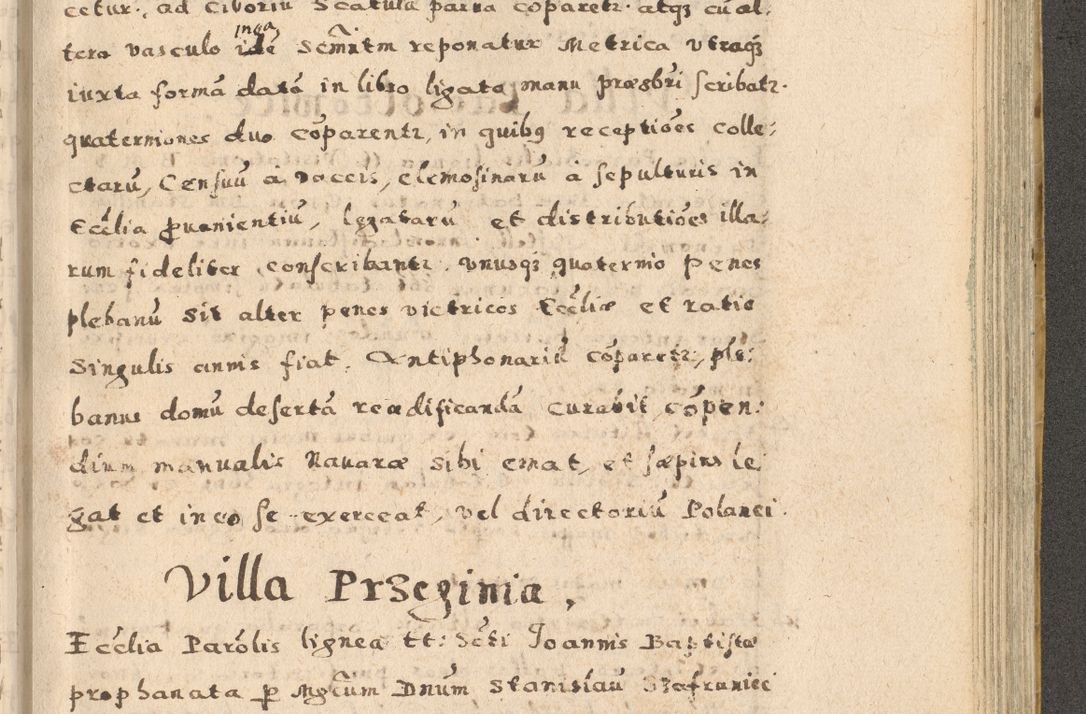 cetur, ad Ciboriũ Scatula parua cõparetr. atqз cũ al,
tero vasculo inga idẽ Scm̃ntm reponatur Metrica vtraqз
iuxta formã datã in libro ligata manu præsbr̃i scribatr.
quaterniones duo cõparentr, in quibq receptiões colle,
ctarũ, Censuũ a vaccis, elemosinarũ a sepulturis in
Eccl̃ia ꝓuenientiũ, legatarũ et distributiões illa,
rum fideliter conscribantr. vnusqз quaternio penes
plebanũ sit alter penes victricos Eccl̃iæ et ratio
Singulis annis fiat. Antiphonariũ cõparetr, ple,
banus domũ desertã readificandã curabit, cõpen,
dium manualis Nauaræ sibi emat, et sæpius le,
gat et in eo se exerceat, vel directoriũ Polanci.
Villa Przeginia,
Eccl̃ia Parõlis lignea tt: Scti Joannis Baptistæ
prophanata ꝑ Mgcũm Dnũm Stanislaũ Szafraniec